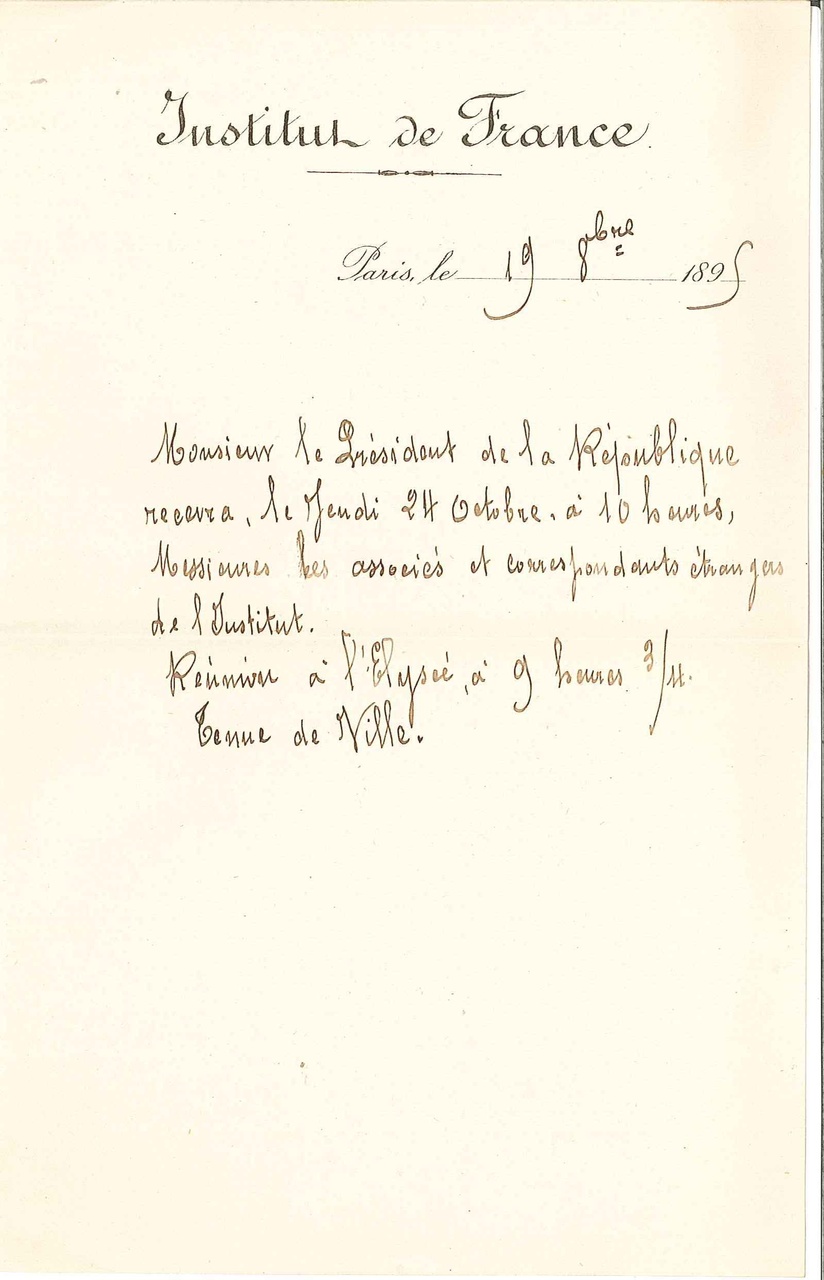 Institut de France
Paris, le 19 8bre 1895
Monsieur le Président de la République
recevra, le Jeudi 24 Octobre, à 10 heures,
Messieures les associés et correspondants étrangers
de l'Institut.
Réunion à l'Elyseé, à 9 heures 3/4.
Tenue de Ville.